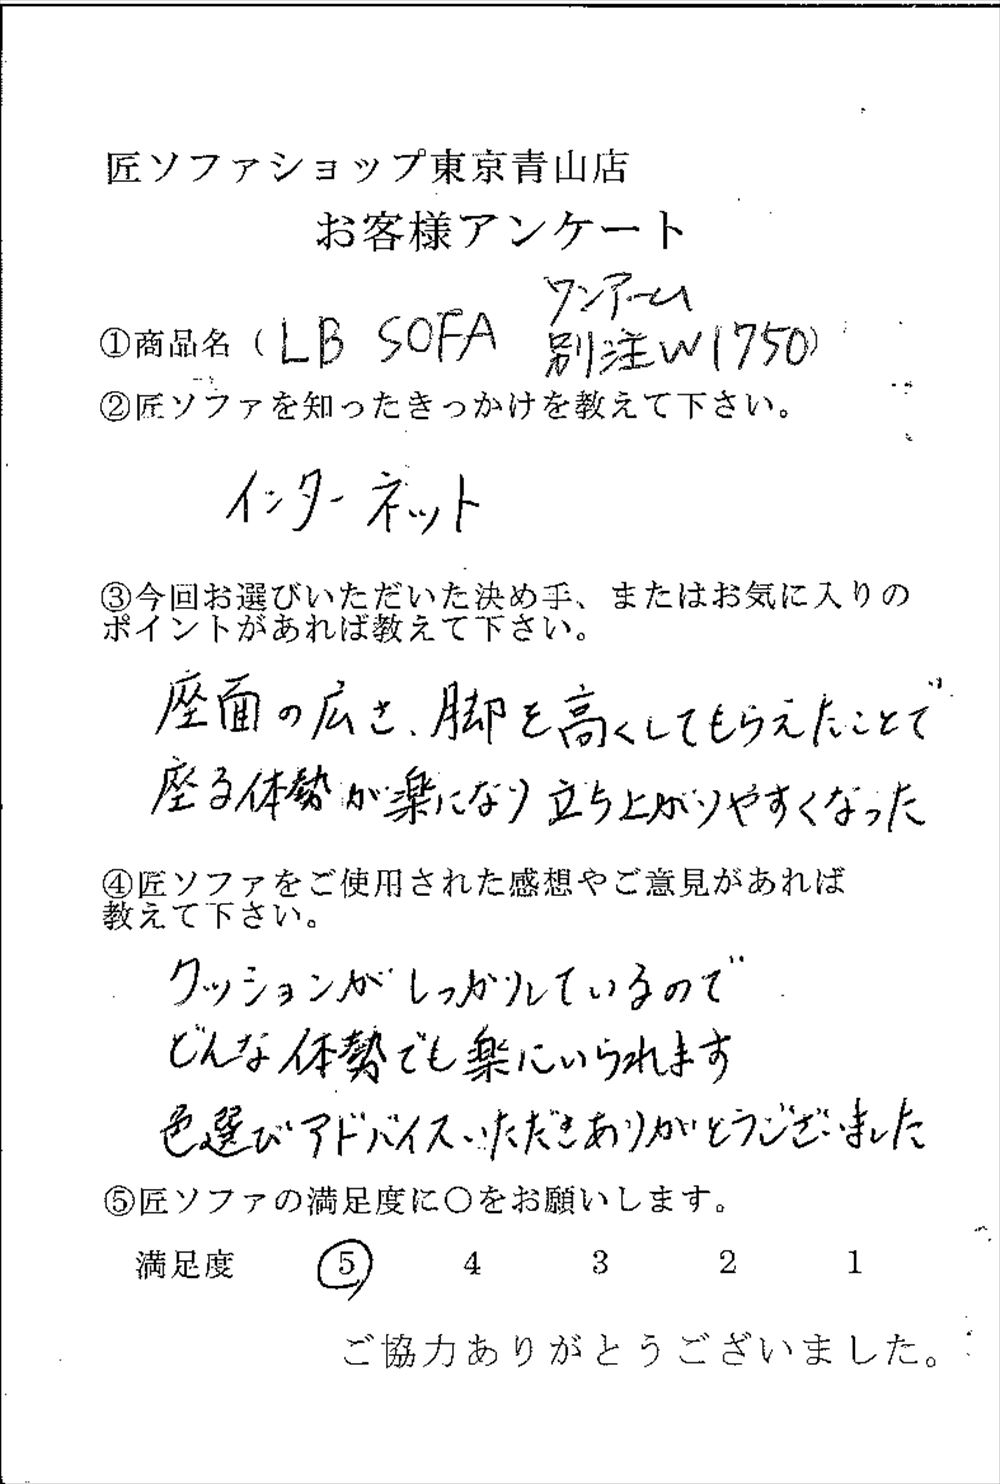 匠ソファショップ東京青山店
お客様アンケート
ワンアーム
①商品名（LB SOFA 別注W1750）
②匠ソファを知ったきっかけを教えて下さい。
インターネット
③今回お選びいただいた決め手、またはお気に入りの
ポイントがあれば教えて下さい。
座面の広さ、脚を高くしてもらえたことで
座る体勢が楽になり立ち上がりやすくなった
④匠ソファをご使用された感想やご意見があれば
教えて下さい。
クッションがしっかりしているので
どんな体勢でも楽にいられます
色選びアドバイスいただきありがとうございました
⑤匠ソファの満足度に〇をお願いします。
満足度 5 4 3 2 1
ご協力ありがとうございました。